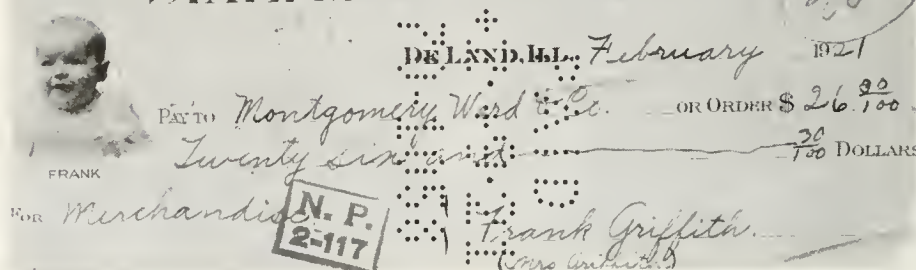 DE LAND, ILL. February 1921
PAY TO Montgomery Ward & Co. OR ORDER $ 26.30/100
FRANK
Twenty six and 30/100 DOLLARS
FOR Merchandise
N. P.
2-117
Frank Griffith.
(Mrs Griffith)